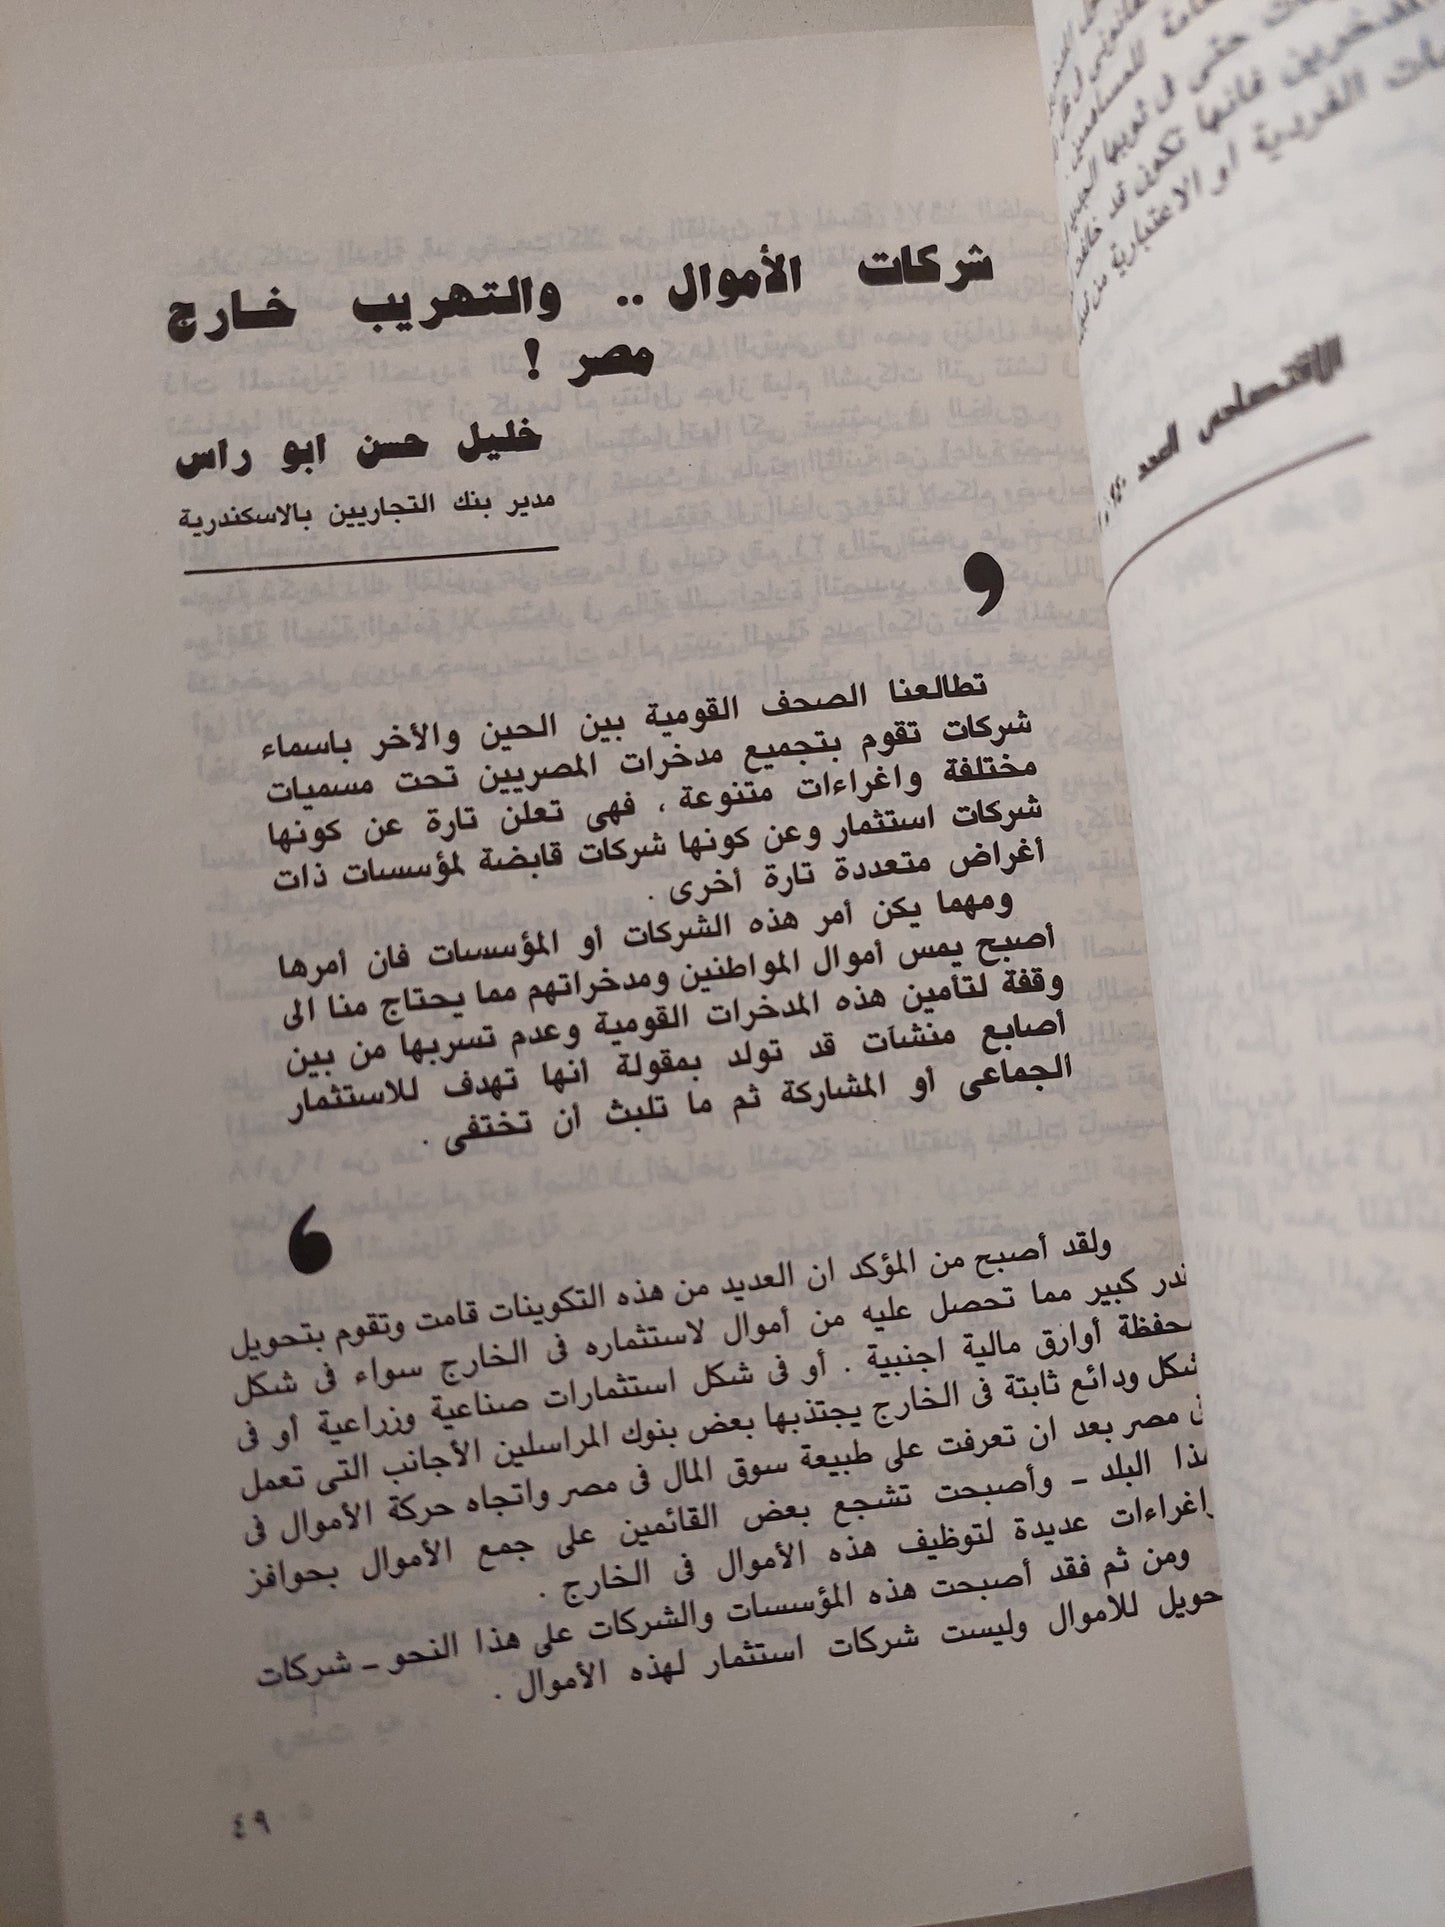 شركات الأموال .. والتهريب خارج
مصر !
خليل حسن ابو راس
مدير بنك التجاريين بالاسكندرية
تطالعنا الصحف القومية بين الحين والأخر باسماء
شركات تقوم بتجميع مدخرات المصريين تحت مسميات
مختلفة واغراءات متنوعة ، فهى تعلن تارة عن كونها
شركات استثمار وعن كونها شركات قابضة لمؤسسات ذات
أغراض متعددة تارة أخرى .
ومهما يكن أمر هذه الشركات أو المؤسسات فان أمرها
أصبح يمس أموال المواطنين ومدخراتهم مما يحتاج منا الى
وقفة لتأمين هذه المدخرات القومية وعدم تسربها من بين
أصابع منشآت قد تولد بمقولة أنها تهدف للاستثمار
الجماعى أو المشاركة ثم ما تلبث أن تختفى .
ولقد أصبح من المؤكد ان العديد من هذه التكوينات قامت وتقوم بتحويل
كبير مما تحصل عليه من أموال لاستثماره فى الخارج سواء فى شكل
أوارق مالية اجنبية . أو فى شكل استثمارات صناعية وزراعية أو فى
شكل ودائع ثابتة فى الخارج يجتذبها بعض بنوك المراسلين الأجانب التى تعمل
مصر بعد ان تعرفت على طبيعة سوق المال فى مصر واتجاه حركة الأموال فى
البلد ـ وأصبحت تشجع بعض القائمين على جمع الأموال بحوافز
واغراءات عديدة لتوظيف هذه الأموال فى الخارج .
ومن ثم فقد أصبحت هذه المؤسسات والشركات على هذا النحو ـ شركات
للاموال وليست شركات استثمار لهذه الأموال .
٤٩
حتى فى ثوبها
فانها تكون قد
الفردية او الاعتبارية
الاقتصادى العدد